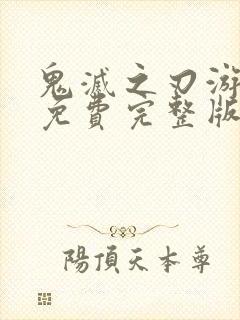 鬼滅之刃游
免費完整版
陽頂天本尊